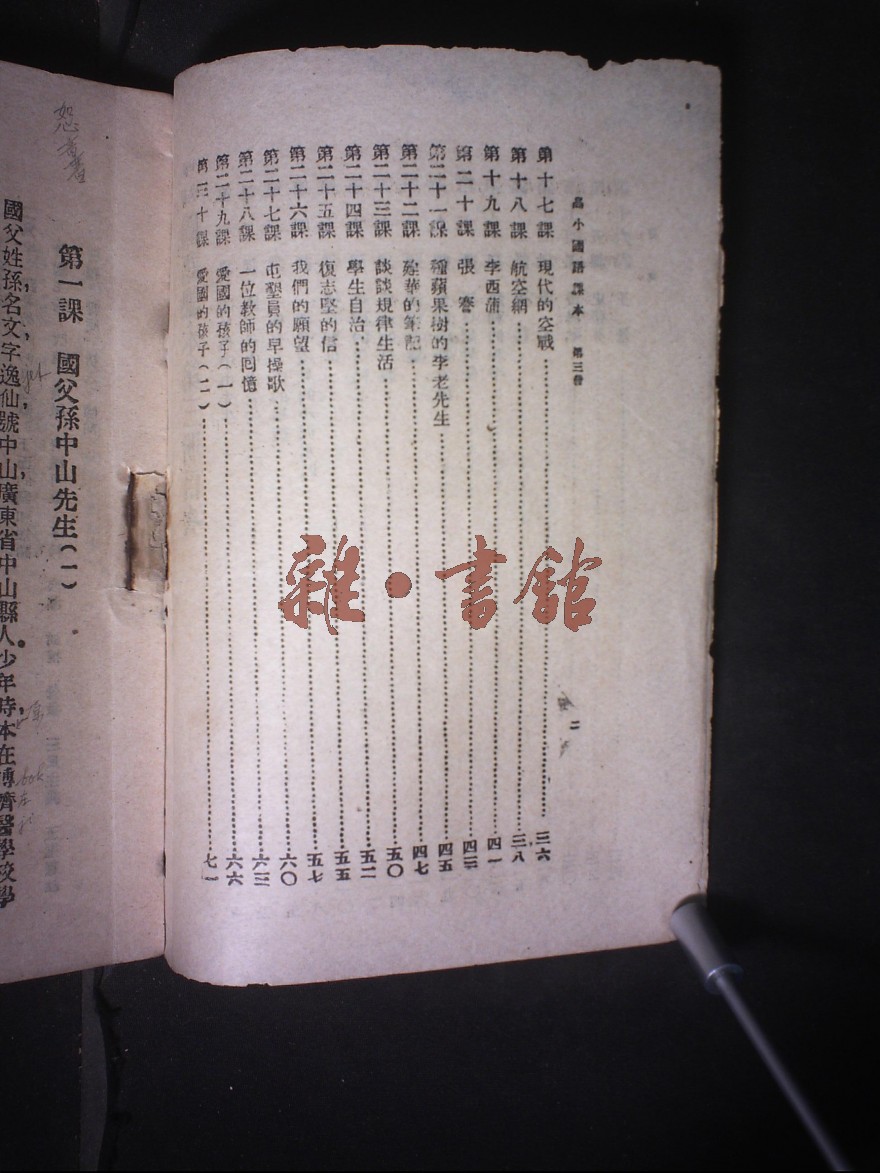 高小國語課本 第三冊
二
第十七課 現代的空戰 三六
第十八課 航空網 三八
第十九課 李西蒲 四一
第二十課 張騫 四三
第二十一課 種蘋果樹的李老先生 四五
第二十二課 建華的筆記 四七
第二十三課 談談規律生活 五〇
第二十四課 學生自治 五二
第二十五課 復志堅的信 五五
第二十六課 我們的願望 五七
第二十七課 屯墾員的早操歌 六〇
第二十八課 一位教師的回憶 六三
第二十九課 愛國的孩子(一) 六六
第三十課 愛國的孩子(二) 七一
雜·書館
恕
第一課 國父孫中山先生(一)
國父姓孫,名文,字逸仙,號中山,廣東省中山縣人。少年時,本在博濟醫學校學